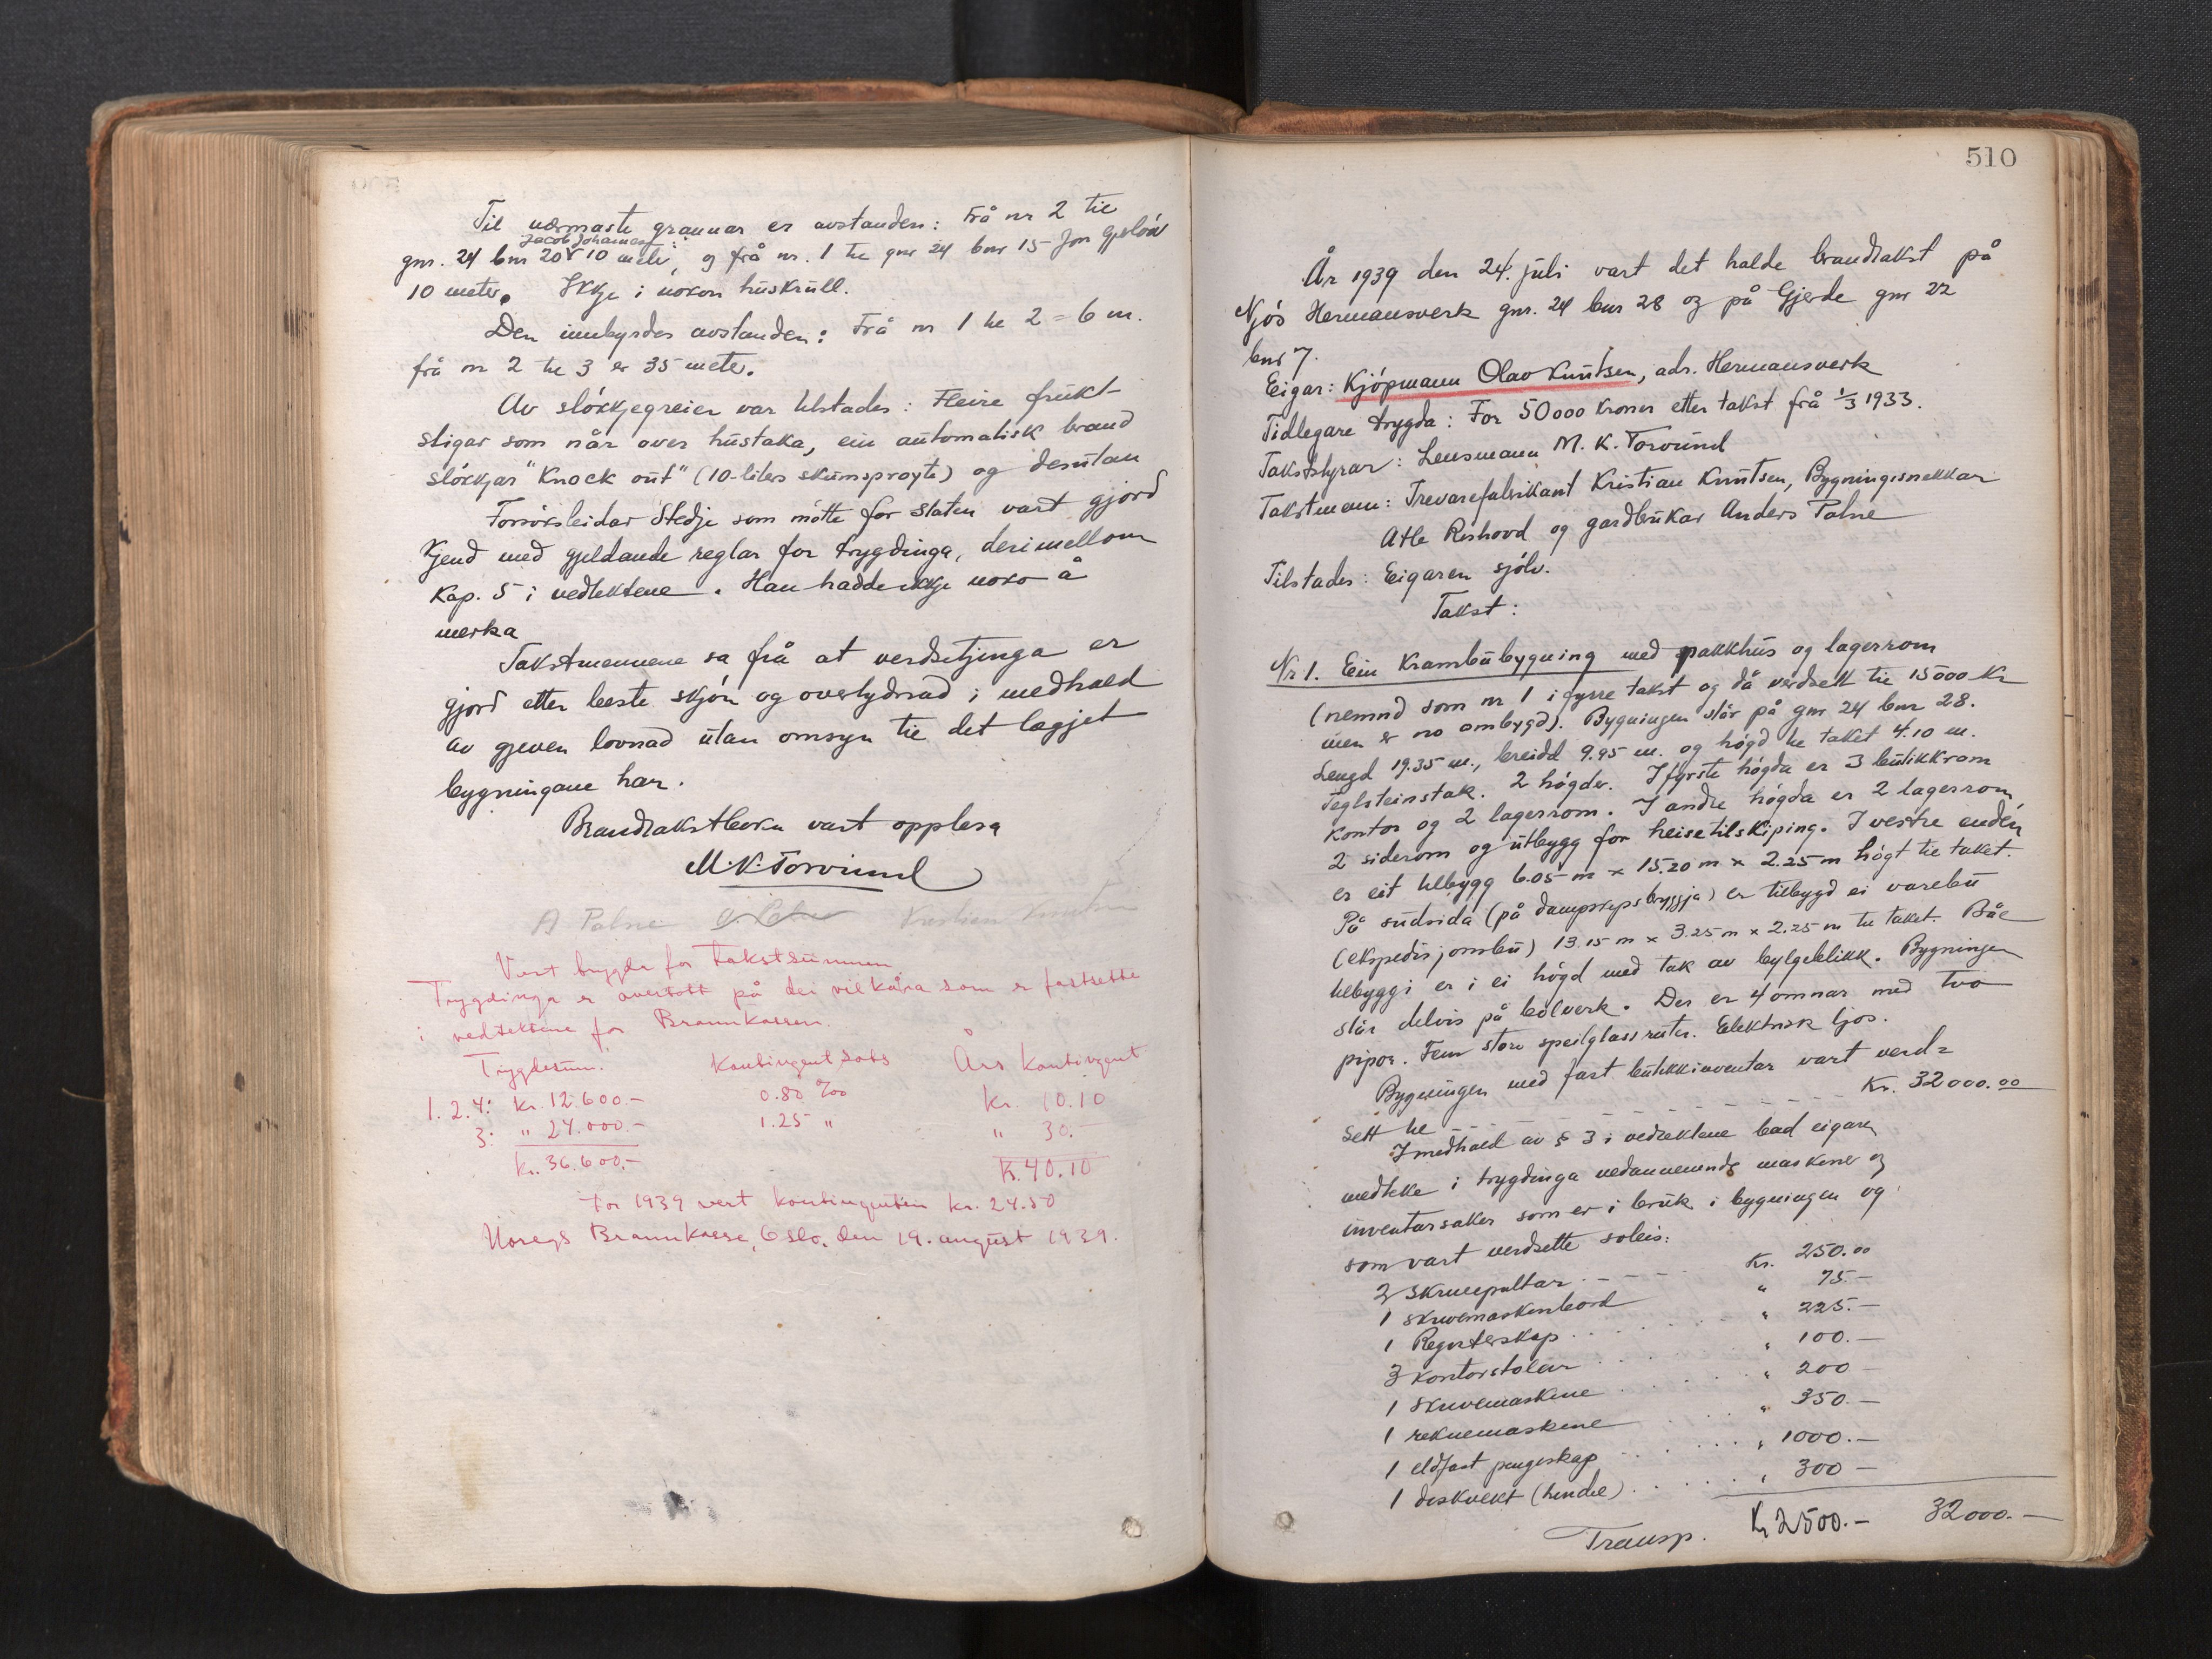 Til nærmaste grannar er avstanden: Frå nr 2 til
Jacob Johannesen:
gnr. 24 bnr 20 10 meter, og frå nr. 1 te gnr 24 bnr 15 Jon
10 meter. Ikkje i nokon huskrull.
Den innbyrdes avstanden: Frå nr 1 te 2 = 6 m.
frå nr 2 te 3 er 35 meter.
Av sløkkjegreier var tilstades: Fleire frukt-
stigar som når over hustaka, ein automatisk brand
sløkkjar "Knock out" (10-liters skumsprøyte) og desutan
Forsøksleidar Stedje som møtte for staten vart gjord
kjend med gjeldande reglar for trygdinga, derimellom
Kap. 5 i vedtektene. Han hadde ikkje noko å
merka
Takstmennene sa frå at verdsetjinga er
gjord etter beste skjøn og overtydnad i medhald
av gjeven lovnad utan omsyn til det lægjet
bygningane har.
Brandtakstboka vart opplesa
M.K. Torvund
A Palne Kristian Knutsen
Vart trygda for takstsummen
Trygdinga er overtatt på dei vilkåra som er fastsette
i vedtektene for Brannkassen.
Trygdesum. Kontingentsats Års kontingent
1. 2. 4: Kr. 12.600.- 0.80 ‰ Kr. 10.10
3: " 24.000.- 1.25 " " 30.-
Kr. 36.600.- Kr. 40.10
For 1939 vert kontingenten kr. 24.50
Noregs Brannkasse, Oslo, den 19. august 1939.
510
År 1939 den 24. juli vart det halde brandtakst på
Njøs Hermansverk gnr. 24 bnr 28 og på Gjerde gnr 22
bnr 7.
Eigar: Kjøpmann Olav Knutsen, adr. Hermansverk
Tidlegare trygda: For 50000 kroner etter takst frå 1/3 1933.
Takststyrar: Lensmann M. K. Torvund
Takstmenn: Trevarefabrikant Kristian Knutsen, Bygningsnekkar
Atle Reshovd og gardbrukar Anders Palne
Tilstades: Eigaren sjølv.
Takst:
Nr 1. Ein Krambubygning med pakkhus og lagerrom
(nemnd som nr 1 i fyrre takst og då verdsett til 15000 Kr
men er no ombygd). Bygningen står på gnr 24 bnr 28.
Lengd 19.35 m., breidd 9.95 m. og høgd te taket 4.10 m.
Teglsteinstak. 2 høgder. I fyrste høgda er 3 butikkrom
kontor og 2 lagerrom. I andre høgda er 2 lagerrom,
2 siderom og utbygg for heisetilskiping. I vestre enden
er eit tilbygg 6.05 m x 15.20 m x 2.25 m høgt til taket.
På sudsida (på dampskipsbryggja) er tilbygd ei varebu
(ekspedisjonsbu) 13.15 m x 3.25 m x 2.25 m te taket. Båe
tilbyggi er i ei høgd med tak av bylgeblikk. Bygningen
står delvis på bolverk. Der er 4 omnar med tvo
pipor. Fem store speilglassruter. Elektrisk ljos.
Bygningen med fast butikkinventar vart verd=
sett te - - - - - - - - Kr. 32000.00
I medhald av § 3 i vedtektene bad eigaren
medteke i trygdinga nedannemnde maskiner og
inventarsaker som er i bruk i bygningen og
som vart verdsette soleis:
2 skrivepultar - - - Kr. 250.00
1 skrivemaskinbord " 75.-
1 Registerskap " 225.-
3 kontorstolar " 100.-
1 skrivemaskine " 200 -
1 reknemaskine " 350.-
1 eldfast pengeskap " 1000.-
1 diskvekt (hendel) " 300 -
Transp. Kr 2500.- 32000.-